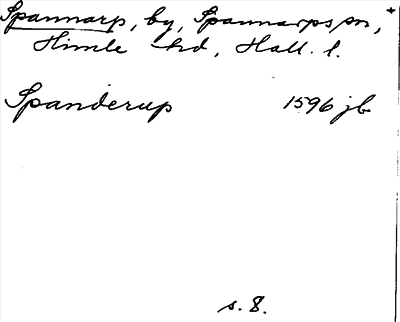 Spannarp, by, Spannarps sn,
Himle hd, Hall. l.
Spanderup 1596 jb
s. 8.